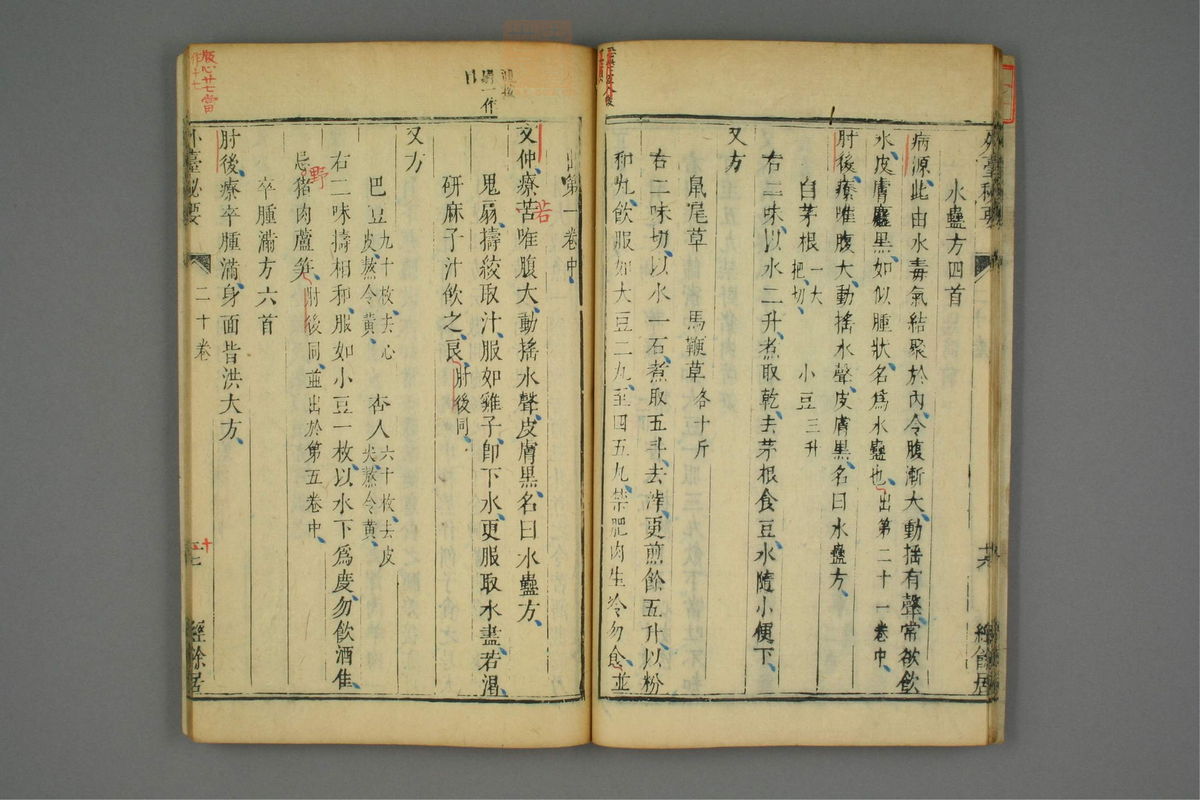 外臺秘要
十六
經餘居
水蠱方四首
病源此由水毒氣結聚於內令腹漸大動搖有聲常欲飲
水皮膚麤黑如似腫狀名爲水蠱也出第二十一卷中
肘後療唯腹大動搖水聲皮膚黑名曰水蠱方
白茅根一大把切 小豆三升
右二味以水二升煮取乾去茅根食豆水隨小便下
又方
鼠尾草 馬鞭草各十斤
右二味切以水一石煮取五斗去滓更煎餘五升以粉
和丸飲服如大豆二丸至四五丸禁肥肉生冷勿食並
出第一卷中
文仲療苦唯腹大動搖水聲皮膚黑名曰水蠱方
若
鬼扇擣絞取汁服如雞子卽下水更服取水盡若渴
研麻子汁飲之良肘後同
又方
巴豆九十枚去心皮熬令黃 杏人六十枚去皮尖熬令黃
右二味擣相和服如小豆一枚以水下爲度勿飲酒佳
忌猪肉蘆笋肘後同並出於第五卷中
野
卒腫滿方六首
肘後療卒腫滿身面皆洪大方
外臺秘要
二十卷
十
經餘居
版心廿七當
作十七
一作
目